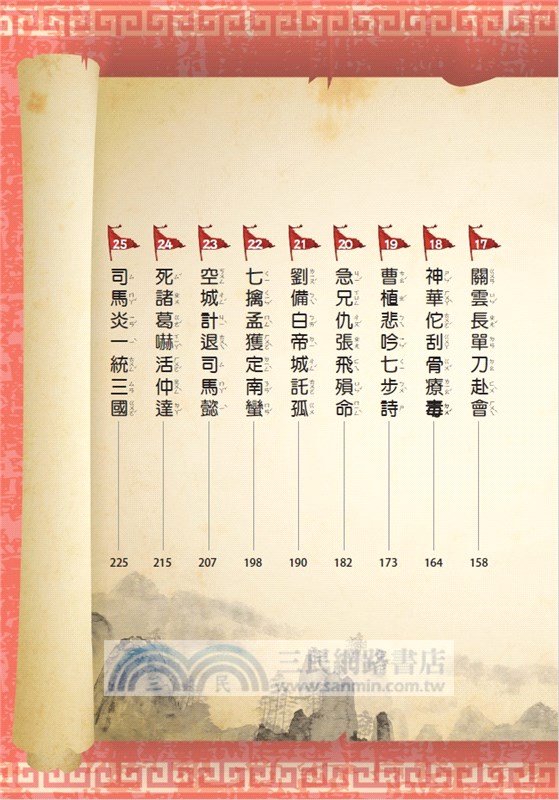 17 關雲長單刀赴會 158
18 神華佗刮骨療毒 164
19 曹植悲吟七步詩 173
20 急兄仇張飛殞命 182
21 劉備白帝城託孤 190
22 七擒孟獲定南蠻 198
23 空城計退司馬懿 207
24 死諸葛嚇活仲達 215
25 司馬炎一統三國 225
三民
三民網路書店
www.sanmin.com.tw